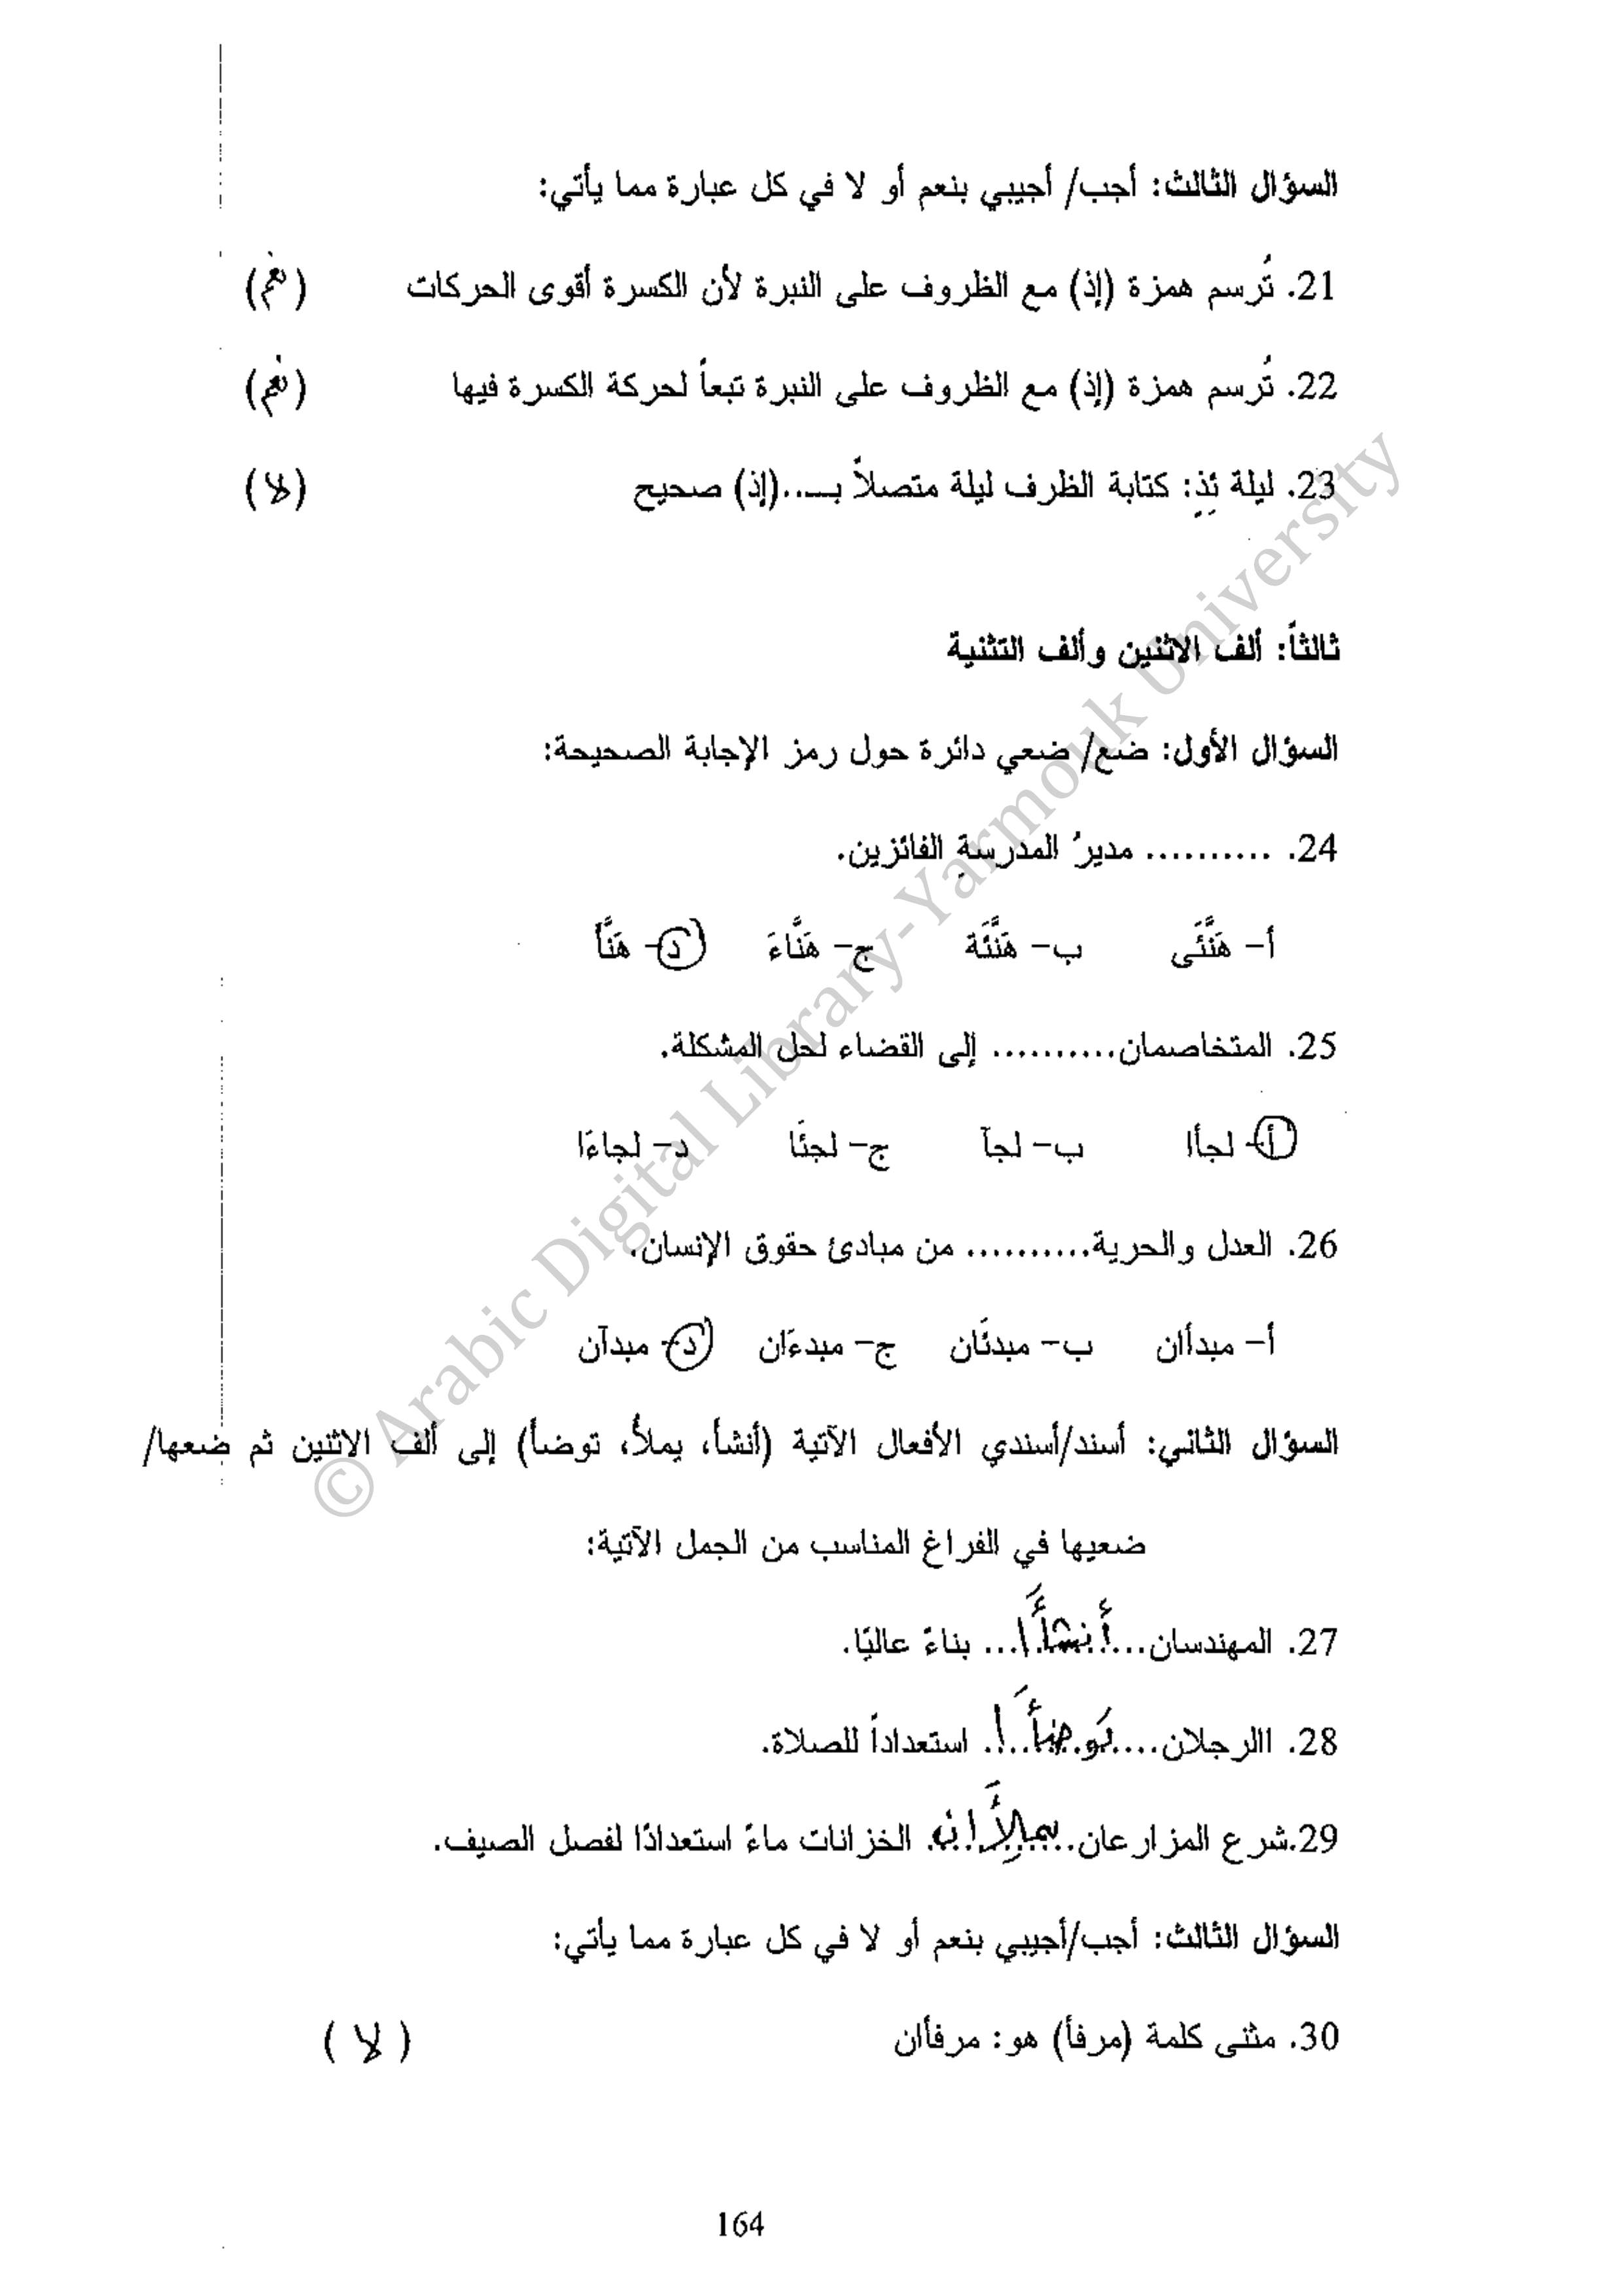 السؤال الثالث: أجب/ أجيبي بنعم أو لا في كل عبارة مما يأتي:
21. تُرسم همزة (إذ) مع الظروف على النبرة لأن الكسرة أقوى الحركات (نعم)
22. تُرسم همزة (إذ) مع الظروف على النبرة تبعاً لحركة الكسرة فيها (نعم)
23. ليلة ئِذٍ: كتابة الظرف ليلة متصلاً بـ..(إذ) صحيح (لا)
ثالثاً: ألف الاثنين وألف التثنية
السؤال الأول: ضع/ ضعي دائرة حول رمز الإجابة الصحيحة:
24. .......... مديرُ المدرسةِ الفائزين.
أ- هَنَّئَى ب- هَنَّئَة ج- هَنَّاءَ د- هَنَّأَ
25. المتخاصمان.......... إلى القضاء لحل المشكلة.
أ- لجأا ب- لجآ ج- لجئَا د- لجاءَا
26. العدل والحرية.......... من مبادئ حقوق الإنسان.
أ- مبدأان ب- مبدئَان ج- مبدءَان د- مبدآن
السؤال الثاني: أسند/أسندي الأفعال الآتية (أنشأ، يملأُ، توضأ) إلى ألف الاثنين ثم ضعها/
ضعيها في الفراغ المناسب من الجمل الآتية:
27. المهندسان...أنشأَا... بناءً عاليًا.
28. االرجلان....تَوضأَا.. استعداداً للصلاة.
29.شرع المزارعان..يملأَان.. الخزانات ماءً استعدادًا لفصل الصيف.
السؤال الثالث: أجب/أجيبي بنعم أو لا في كل عبارة مما يأتي:
30. مثنى كلمة (مرفأ) هو: مرفأان ( لا )
164
© Arabic Digital Library-Yarmouk University